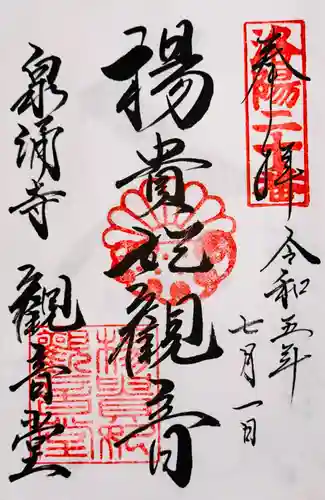 奉拝
洛陽二十番
令和五年
七月一日
楊貴妃観音
泉涌寺
観音堂
楊貴妃
観音堂